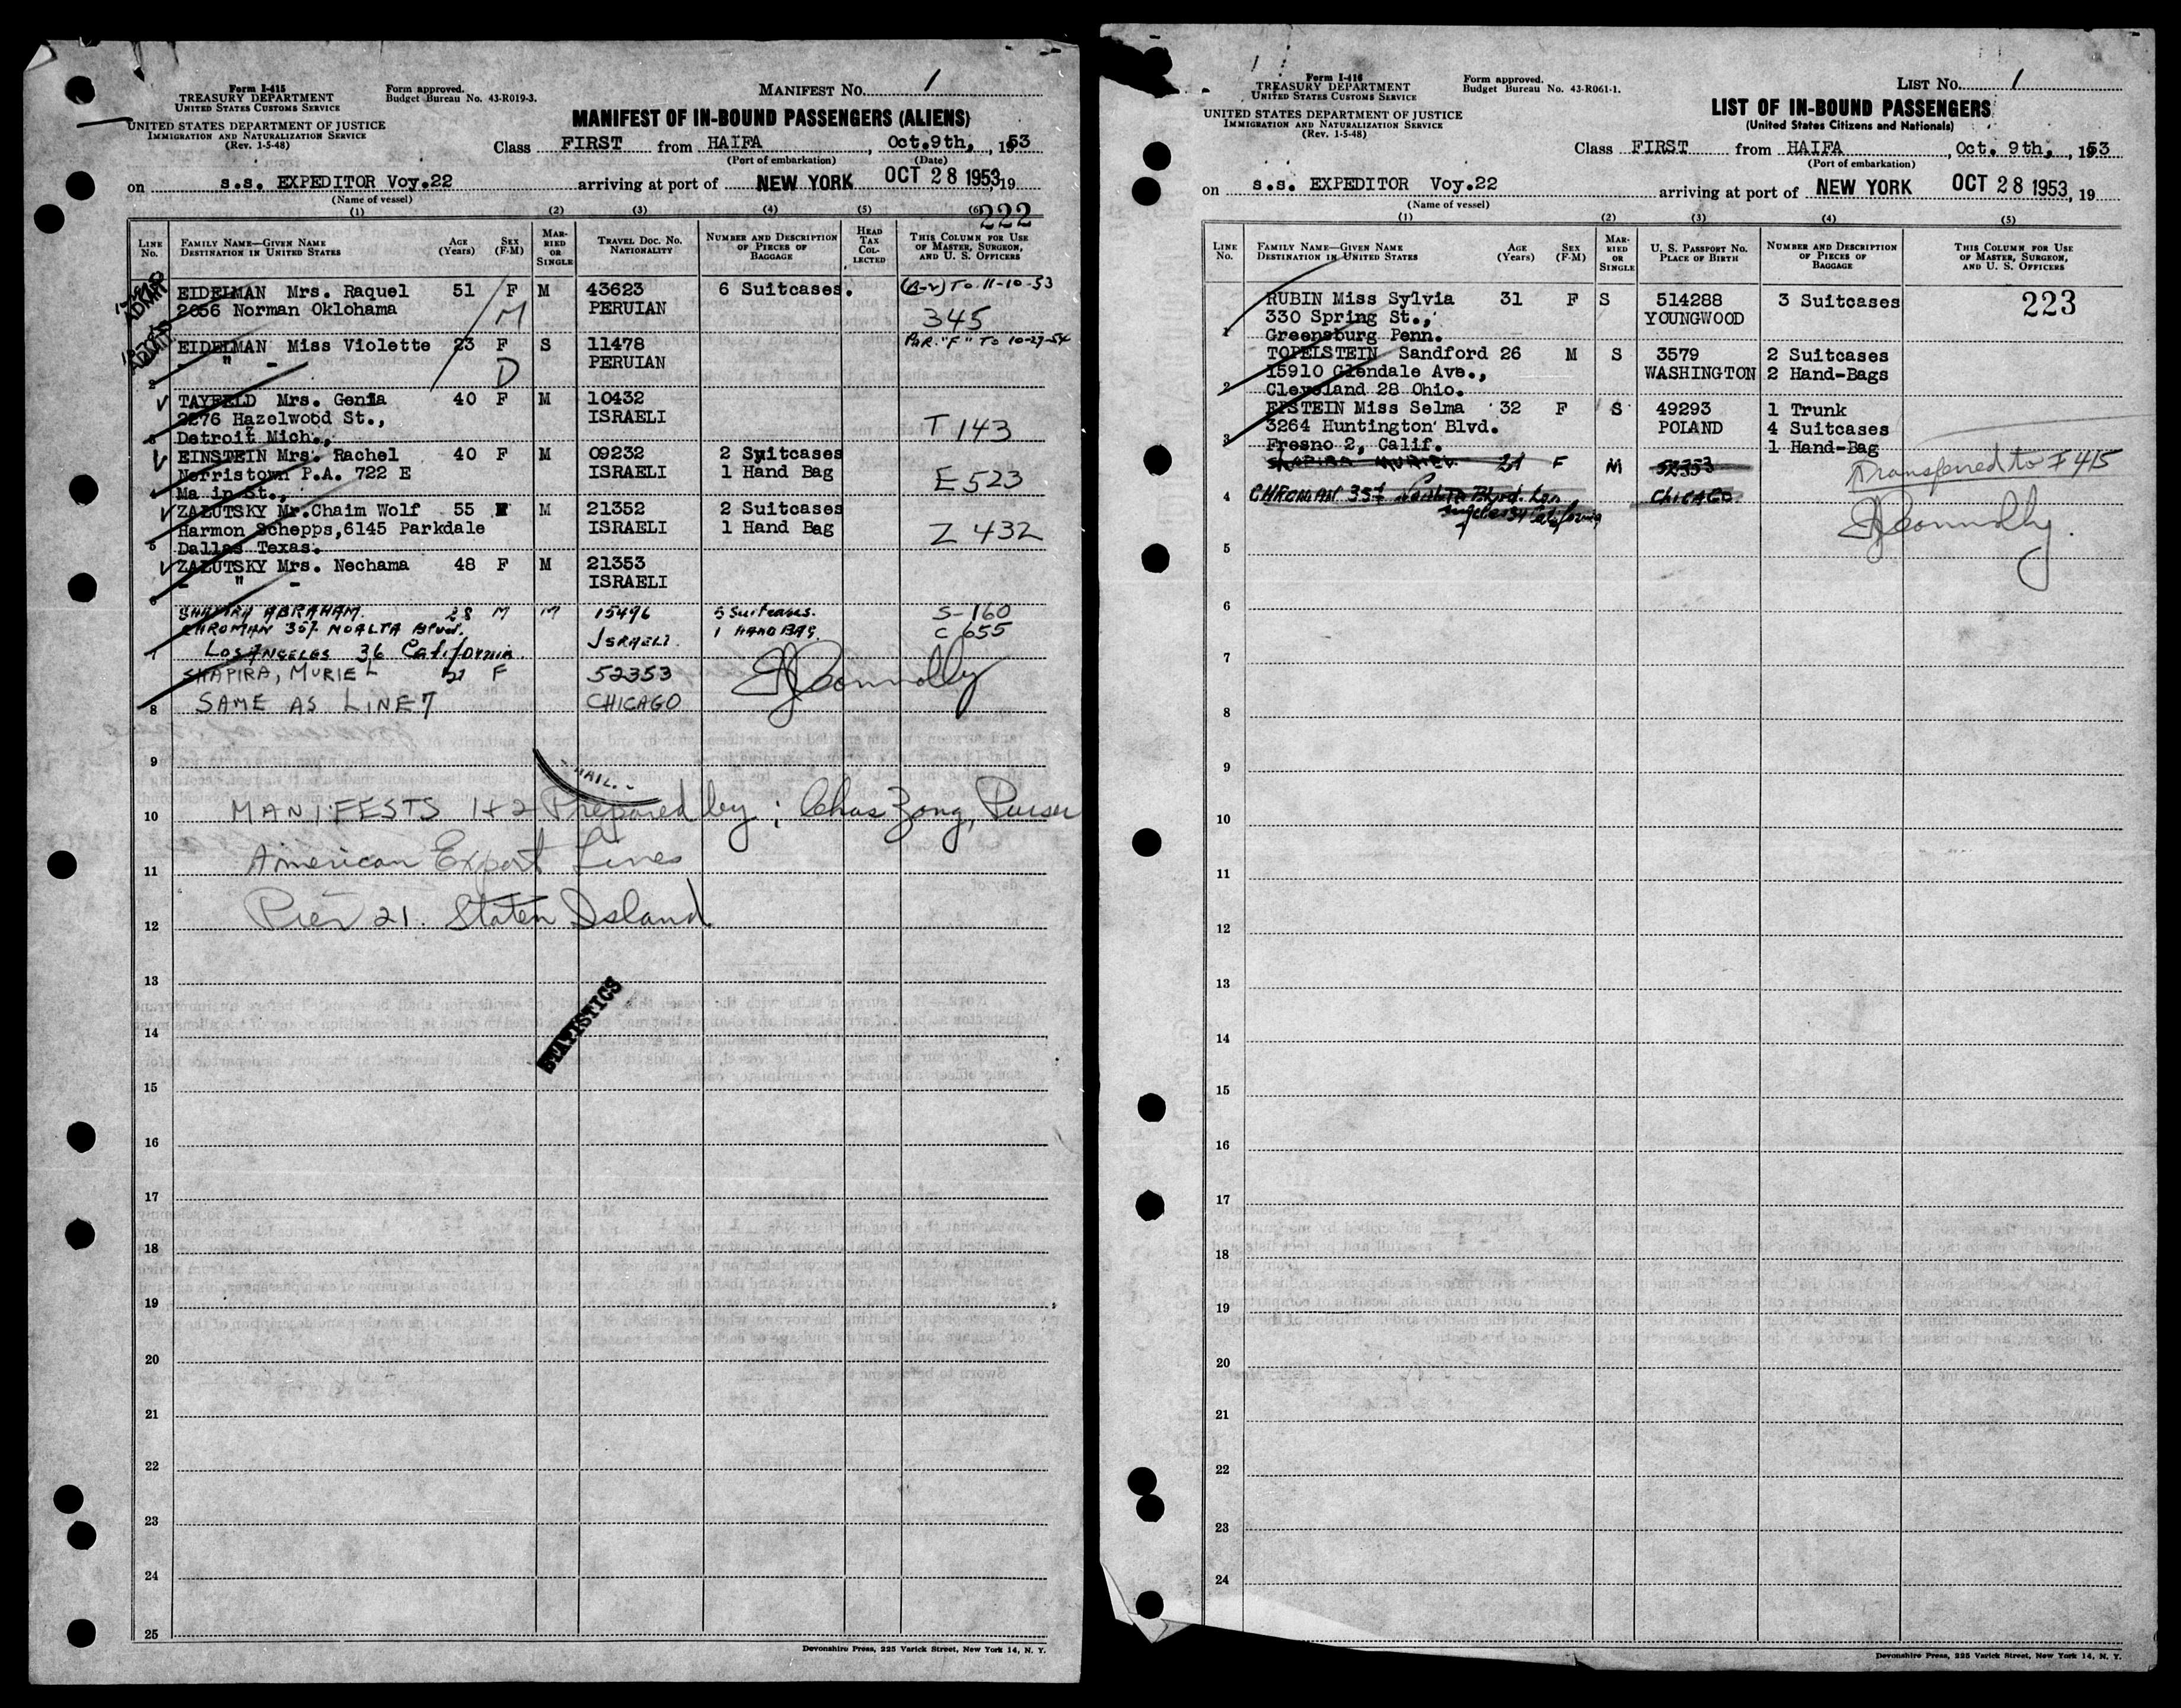 Form I-415
TREASURY DEPARTMENT
UNITED STATES CUSTOMS SERVICE
UNITED STATES DEPARTMENT OF JUSTICE
IMMIGRATION AND NATURALIZATION SERVICE
(Rev. 1-5-48)
Form approved.
Budget Bureau No. 43-R019-3.
MANIFEST No. 1
MANIFEST OF IN-BOUND PASSENGERS (ALIENS)
Class FIRST from HAIFA, Oct.9th, , 1953
(Port of embarkation) (Date)
on s.s. EXPEDITOR Voy.22 arriving at port of NEW YORK OCT 28 1953, 19
(Name of vessel)
(1) (2) (3) (4) (5) (6) 222
LINE No. FAMILY NAME—GIVEN NAME DESTINATION IN UNITED STATES AGE (Years) SEX (F-M) MARRIED OR SINGLE TRAVEL DOC. No. NATIONALITY NUMBER AND DESCRIPTION OF PIECES OF BAGGAGE HEAD TAX COLLECTED THIS COLUMN FOR USE OF MASTER, SURGEON, AND U. S. OFFICERS
EIDELMAN Mrs. Raquel 51 F M 43623 6 Suitcases. (B-2) To 11-10-53
2056 Norman Oklohama M PERUIAN 345
EIDELMAN Miss Violette 23 F S 11478 Par. "F" To 10-27-54
2 - " - D PERUIAN
TAYFELD Mrs. Genia 40 F M 10432
2276 Hazelwood St., ISRAELI T 143
3 Detroit Mich.,
EINSTEIN Mrs. Rachel 40 F M 09232 2 Syitcases
Norristown P.A. 722 E ISRAELI 1 Hand Bag E 523
4 Ma in St.,
ZALUTSKY Mr.Chaim Wolf 55 M 21352 2 Suitcases
Harmon Schepps,6145 Parkdale ISRAELI 1 Hand Bag Z 432
5 Dallas Texas.
ZALUTSKY Mrs. Nechama 48 F M 21353
6 - " - ISRAELI
SHAPIRA ABRAHAM. 28 M M 15496 5 Suitcases. S-160
CHROMAN 357 NOALTA Blvd. ISRAELI. 1 HAND BAG. C 655
7 LOS ANGELES 36 California.
SHAPIRA, MURIEL 21 F 52353
8 SAME AS LINE 7 CHICAGO
9
10 MANIFESTS 1+2 Prepared by; Chas Zong, Purser
11 American Export Lines
12 Pier 21. Staten Island.
13
STATISTICS
14
15
16
17
18
19
20
21
22
23
24
25
Devonshire Press, 225 Varick Street, New York 14, N. Y.
Form I-416
TREASURY DEPARTMENT
UNITED STATES CUSTOMS SERVICE
UNITED STATES DEPARTMENT OF JUSTICE
IMMIGRATION AND NATURALIZATION SERVICE
(Rev. 1-5-48)
Form approved.
Budget Bureau No. 43-R061-1.
LIST No. 1
LIST OF IN-BOUND PASSENGERS
(United States Citizens and Nationals)
Class FIRST from HAIFA, Oct. 9th, , 1953
(Port of embarkation) (Date)
on s.s. EXPEDITOR Voy.22 arriving at port of NEW YORK OCT 28 1953, 19
(Name of vessel)
(1) (2) (3) (4) (5)
LINE No. FAMILY NAME—GIVEN NAME DESTINATION IN UNITED STATES AGE (Years) SEX (F-M) MARRIED OR SINGLE U. S. PASSPORT No. PLACE OF BIRTH NUMBER AND DESCRIPTION OF PIECES OF BAGGAGE THIS COLUMN FOR USE OF MASTER, SURGEON, AND U. S. OFFICERS
RUBIN Miss Sylvia 31 F S 514288 3 Suitcases 223
330 Spring St., YOUNGWOOD
1 Greensburg Penn.
TOPELSTEIN Sandford 26 M S 3579 2 Suitcases
15910 Glendale Ave., WASHINGTON 2 Hand-Bags
2 Cleveland 28 Ohio.
EPSTEIN Miss Selma 32 F S 49293 1 Trunk
3264 Huntington Blvd. POLAND 4 Suitcases
3 Fresno 2, Calif. 1 Hand-Bag
SHAPIRA MURIEL 21 F M 52353 Transferred to I 415
4 CHROMAN 357 Noalta Blvd. Los CHICAGO
Angeles 34 California
5
6
7
8
9
10
11
12
13
14
15
16
17
18
19
20
21
22
23
24
Devonshire Press, 225 Varick Street, New York 14, N. Y.